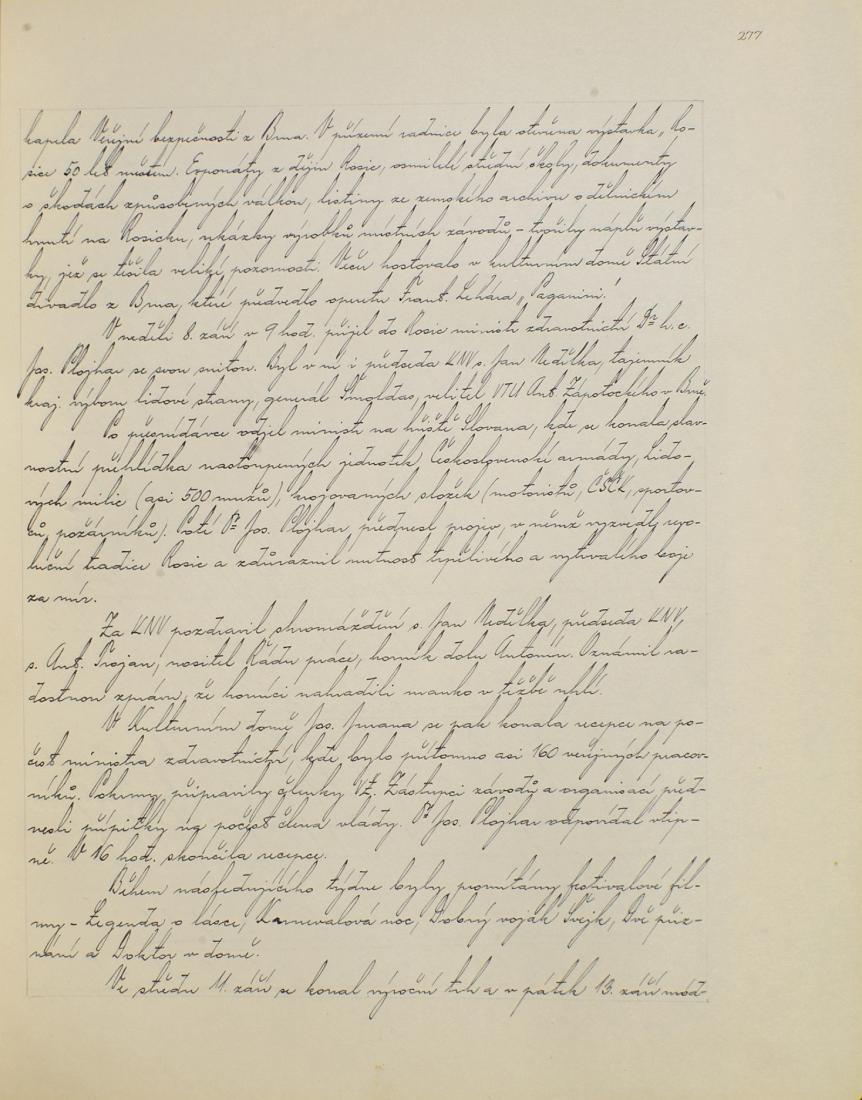 277
kapela Veřejné bezpečnosti z Brna. V přízemí radnice byla otevřena výstavka „Ro-
sice 50 let městem. Exponáty z dějin Rosic, osmileté střední školy, dokumenty
o škodách způsobených válkou, listiny ze zemského archivu o dělnickém
hnutí na Rosicku, ukázky výrobků místních závodů - tvořily náplň výstav-
ky, jež se těšila veliké pozornosti. Večer hostovalo v kulturním domě Státní
divadlo z Brna, které předvedlo operetu Frant. Lehára „Paganini.“
V neděli 8. září v 9 hod. přijel do Rosic ministr zdravotnictví Dr. h. c.
Jos. Plojhar se svou suitou. Byl v ní i předseda KNV s. Jan Nedělka, tajemník
kraj. výboru lidové strany, generál Šmoldas, velitel VTU Ant. Zápotockého v Brně.
Po přesnídávce odjel ministr na hřiště Slovana, kde se konala slav-
nostní přehlídka nastoupených jednotek Československé armády, Lido-
vých milic (asi 500 mužů), krojovaných složek (motoristů, ČSČK, sportov-
ců, požárníků). Poté Dr. Jos. Plojhar přednesl projev, v němž vyzvedl revo-
luční tradice Rosic a zdůraznil nutnost trpělivého a vytrvalého boje
za mír.
Za KNV pozdravil shromáždění s. Jan Nedělka, předseda KNV,
s. Ant. Trojan, nositel Řádu práce, horník dolu Antonín. Oznámil ra-
dostnou zprávu, že horníci nahradili manko v těžbě uhlí.
V Kulturním domě Jos. Jurana se pak konala recepce na po-
čest ministra zdravotnictví, kde bylo přítomno asi 160 veřejných pracov-
níků. Pokrmy připravily členky VŽ. Zástupci závodů a organisací před-
nesli přípitky na počest člena vlády. Dr. Jos. Plojhar odpovídal vtip-
ně. V 16 hod. skončila recepce.
Během následujícího týdne byly promítány festivalové fil-
my - Legenda o lásce, Karnevalová noc, Dobrý voják Švejk, Dvě přiz-
nání a Doktor v domě.
Ve středu 11. září se konal výroční trh a v pátek 13. září mód-